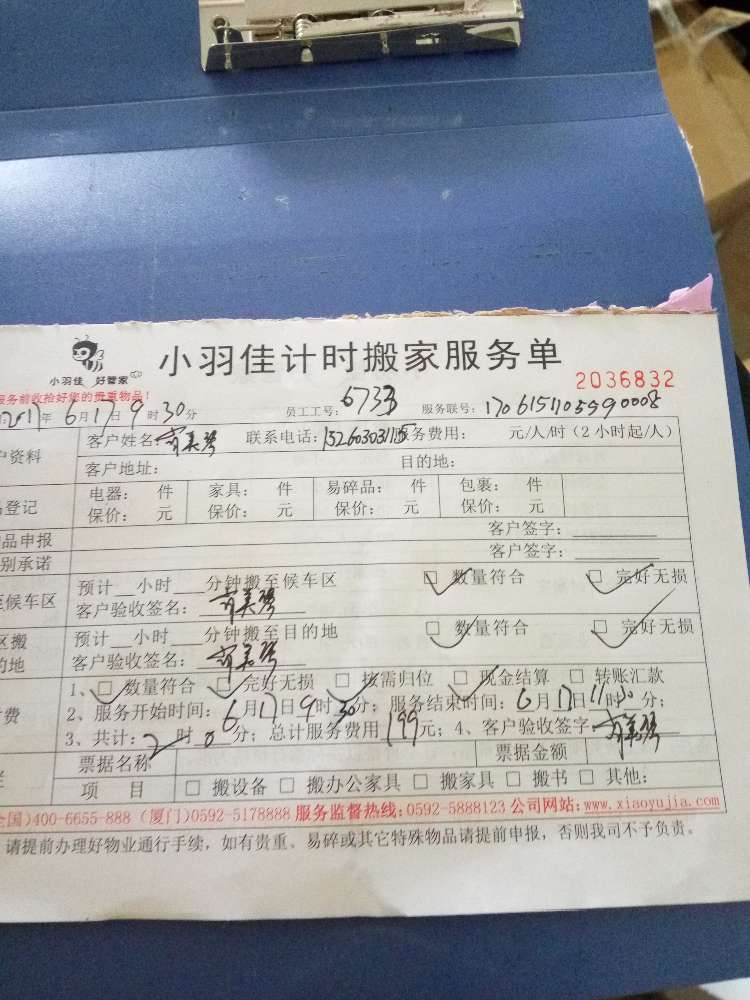 小羽佳 好管家
小羽佳计时搬家服务单
2036832
服务前收拾好您的贵重物品!
2017年6月17日9时30分 员工工号: 6733 服务联号:
客户姓名: 联系电话: 服务费用: 元/人/时(2小时起/人)
户资料
客户地址: 目的地:
电器: 件 家具: 件 易碎品: 件 包裹: 件
品登记
保价: 元 保价: 元 保价: 元 保价: 元
物品申报 客户签字:
别承诺 客户签字:
预计__小时___分钟搬至候车区 □ 数量符合 □ 完好无损
至候车区
客户验收签名:
区搬 预计__小时___分钟搬至目的地 □ 数量符合 □ 完好无损
的地 客户验收签名:
1、□ 数量符合 □ 完好无损 □ 按需归位 □ 现金结算 □ 转账汇款
2、服务开始时间: 6月17日9时30分; 服务结束时间: 6月17日11时30分;
计费
3、共计: 2时0分; 总计服务费用199元; 4、客户验收签字:
票据名称 票据金额
项 目 □ 搬设备 □ 搬办公家具 □ 搬家具 □ 搬书 □ 其他:
全国)400-6655-888 (厦门)0592-5178888 服务监督热线:0592-5888123 公司网站:www.xiaoyujia.com
请提前办理好物业通行手续,如有贵重、易碎或其它特殊物品请提前申报,否则我司不予负责。